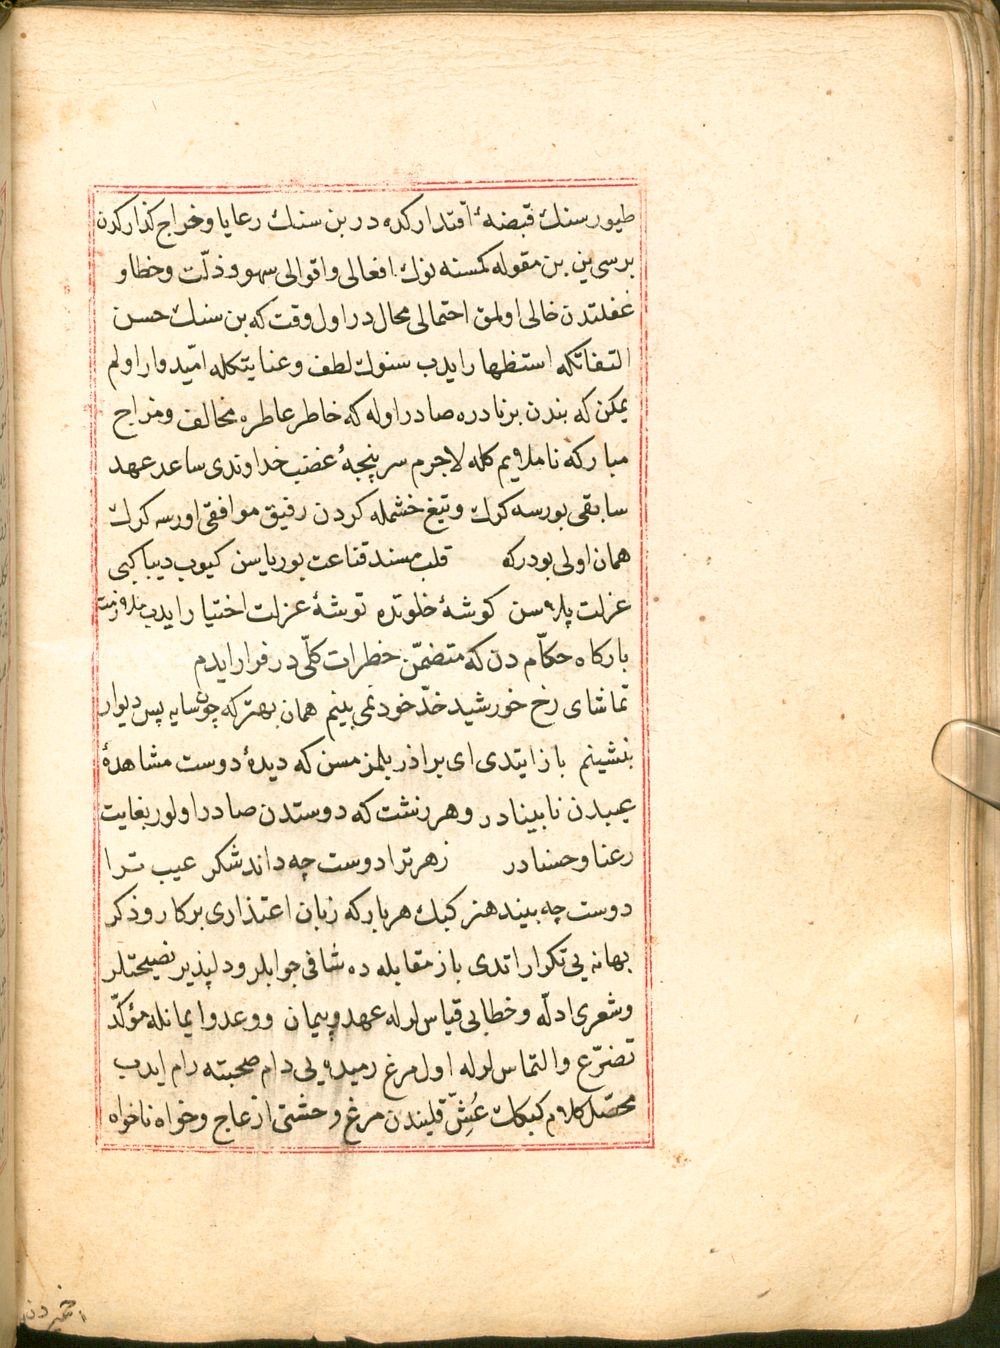 طیور سنك قبضهٔ اقتدارکده در بن سنك رعایا و خراج کذارکدن
برسی ین بن مقوله کمسنه نوك افعالی و اقوالی سهو و ذلّت و خطا و
غفلتدن خالی اولمق احتمالی محال در اول وقت که بن سنك حسن
التفاتکه استظهار ایدب سنوك لطف و عنایتکله امّیدوار اولم
یمکن که بندن بر نادره صادر اوله که خاطر عاطره مخالف و مزاج
مبارکه ناملایم کله لاجرم سرپنجهٔ غضب خداوندی ساعد عهد
سابقی بورسه کرك و تیغ خشمله کردن رفیق موافقی اورسه کرك
همان اولی بودرکه قلب مسند قناعت بوریاسن کیوب دیبا کبی
عزلت پلاسن کوشهٔ خلوتده توشهٔ عزلت اختیار ایدب ملازمت
بارکاه حکّام دن که متضمّن خطرات کلّی در فرار ایدم
تماشای رخ خورشید خدّ خود نمی بینم همان بهتر که چون سایه پس دیوار
بنشینم باز ایتدی ای براذر بلمز مسن که دیدهٔ دوست مشاهدهٔ
عیبدن نابینادر و هر زشت که دوستدن صادر اولور بغایت
رعنا و حسنادر زهر ترا دوست چه داند شکر عیب ترا
دوست چه بیند هنر کبك هر بار که زبان اعتذاری برکار و ذکر
بهانه یی تکرار اتدی باز مقابله ده شافی جوابلر و دلپذیر نصیحتلر
و شعری ادلّه و خطابی قیاس لرله عهد و پیمان و وعد و ایمانله مؤکّد
تضرّع و التماس لرله اول مرغ رمیده یی دام صحبته رام ایدب
محصّل کلام کبكات عُشّ قلیندن مرغ وحشتی ازعاج و خواه ناخواه